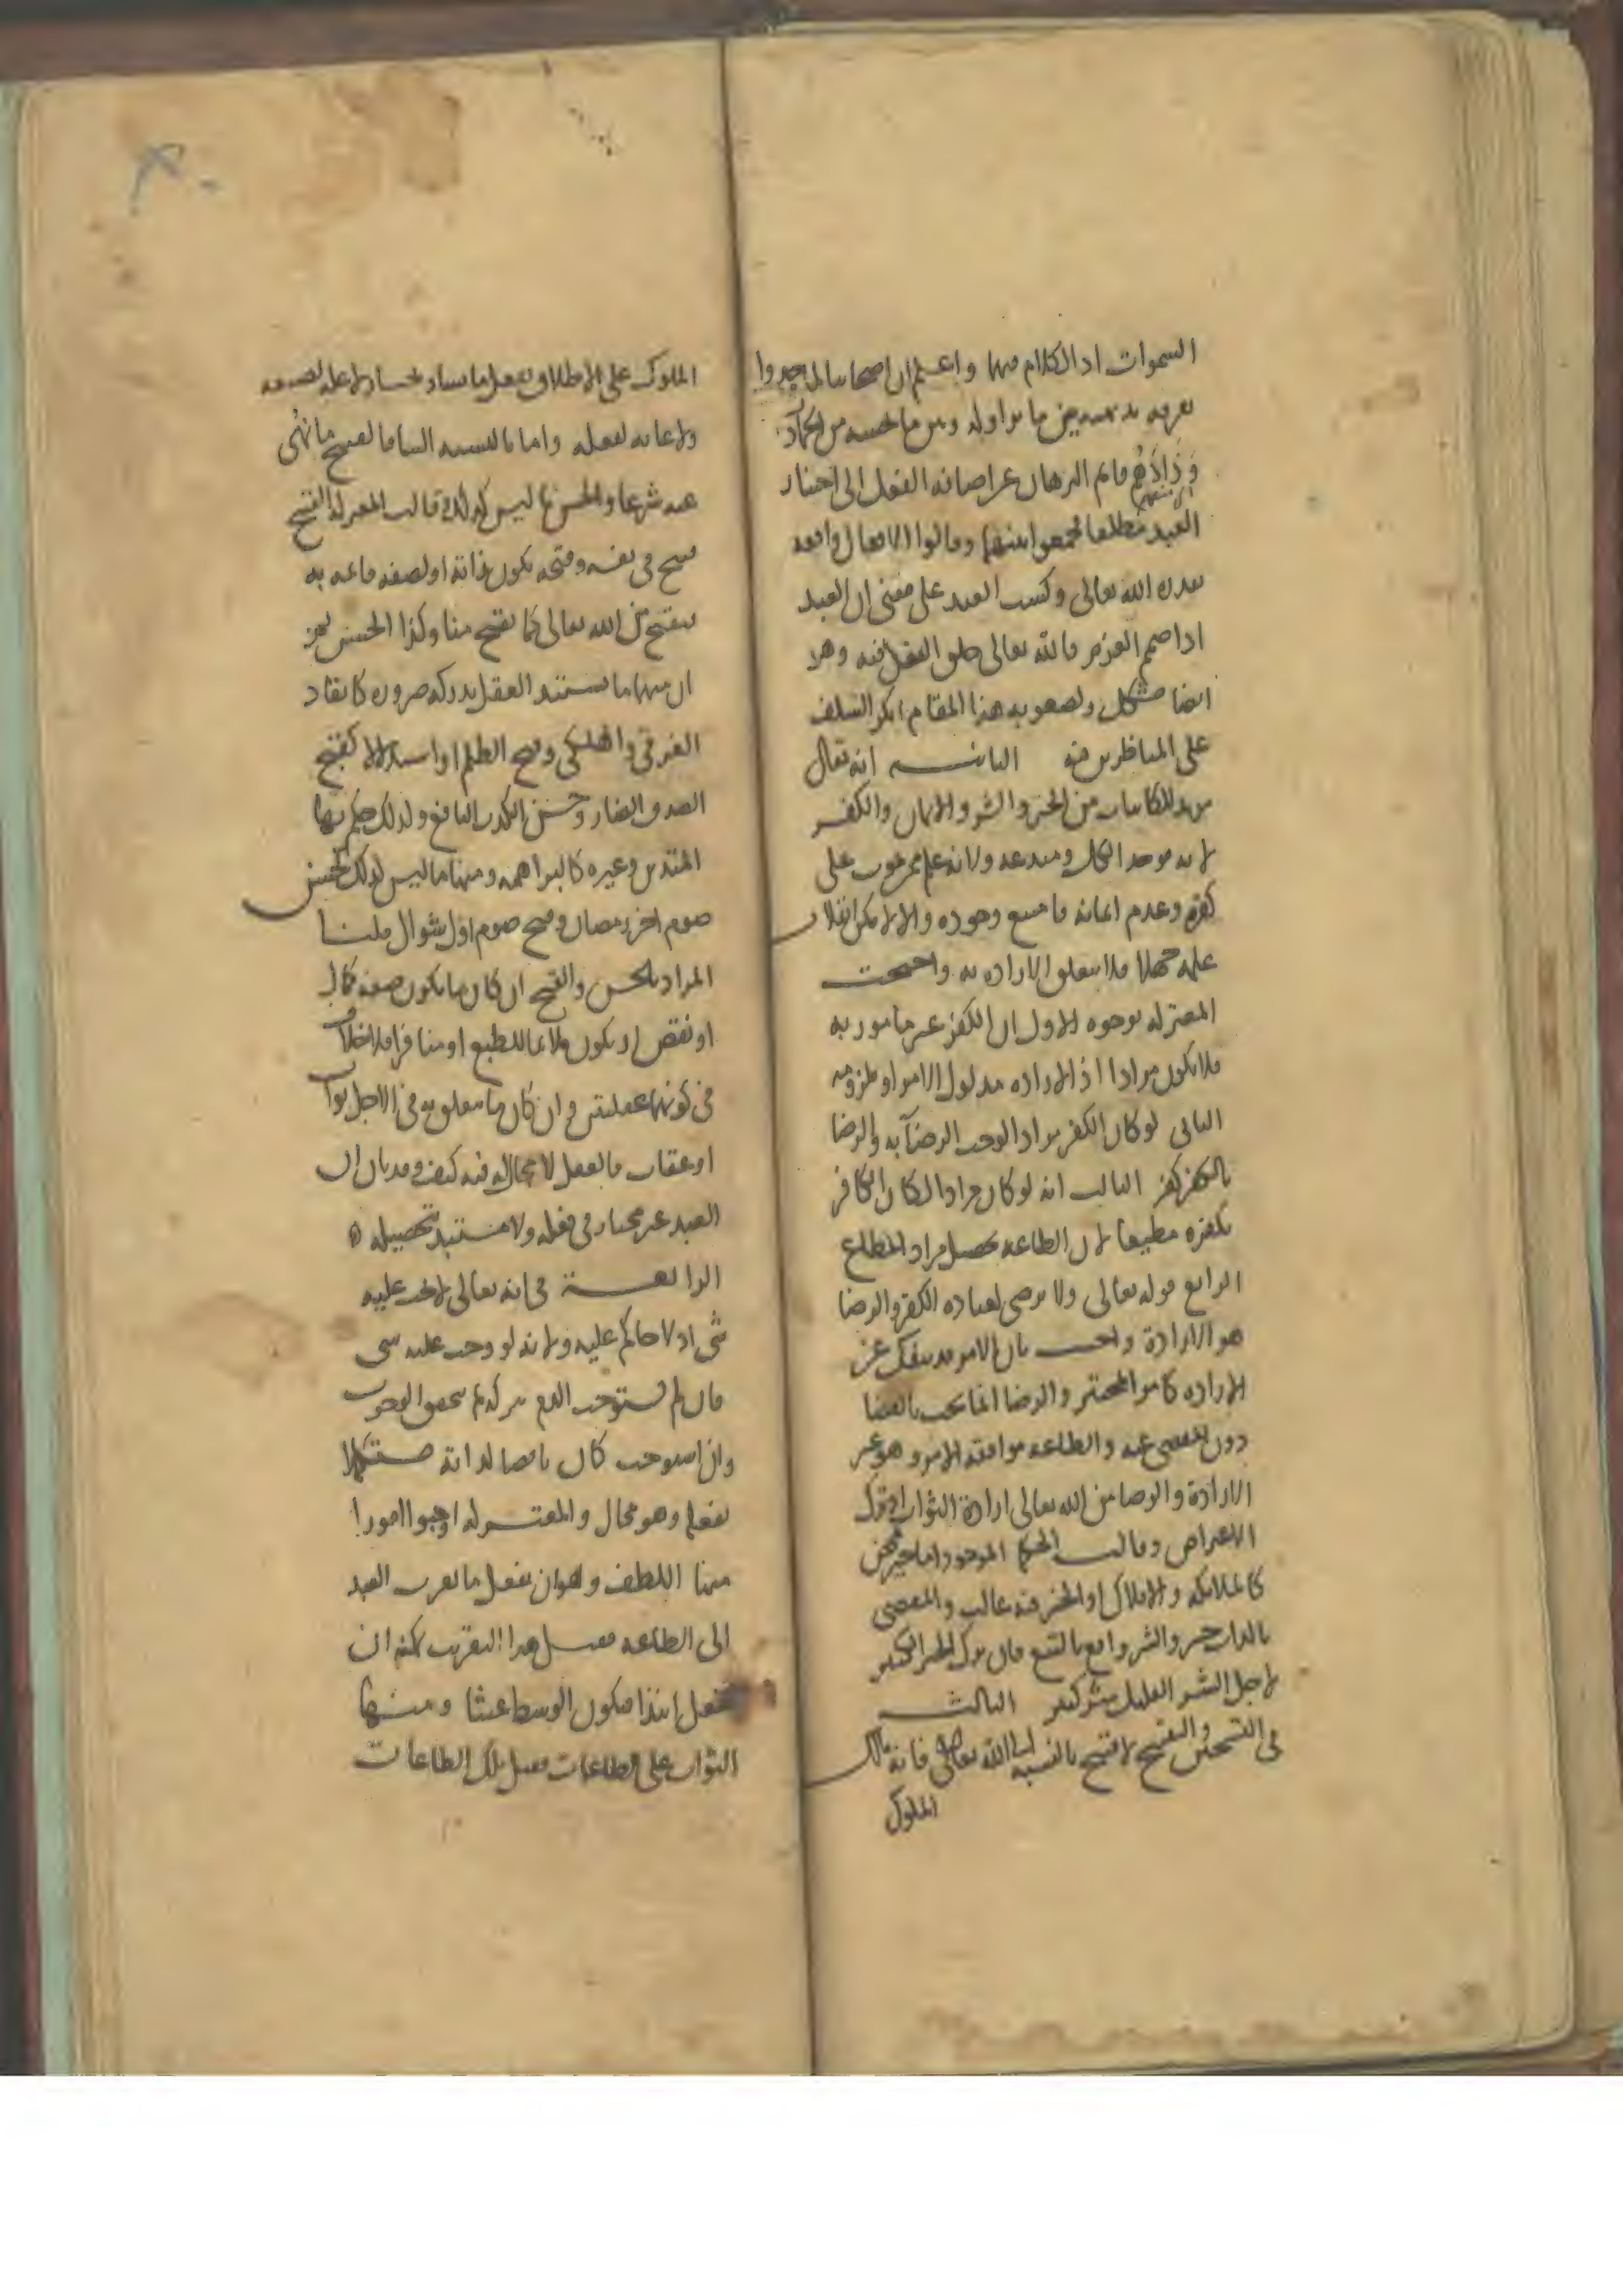 السموات اذ الكلام فيها واعلم ان اصحابنا لما وجدوا
تفرقة بديهية بين ما نزاوله وبين ما نحسه من الجمادات
وذادهم قائم البرهان عن اضافة الفعل الى اختيار
العبد مطلقا جمعوا بينهما وقالوا الافعال واقعة
بقدرة الله تعالى وكسب العبد على معنى ان العبد
اذا صمم العزم فالله تعالى خلق الفعل فيه وهو
ايضا مشكل ولصعوبة هذا المقام انكر السلف
على المناظرين فيه الثانية انه تعالى
مريد للكائنات من الخير والشر والايمان والكفر
لانه موجد الكل ومبدعه ولانه علم ممن يموت على
كفره وعدم ايمانه فامتنع وجوده والا لامكن انقلاب
علمه جهلا فلا يتعلق الارادة به واحتجت
المعتزلة بوجوه الاول ان الكفر غير مامور به
فلا يكون مرادا اذ الارادة مدلول الامر او ملزومه
الثاني لو كان الكفر مرادا لوجب الرضا به والرضا
بالكفر كفر الثالث انه لو كان مرادا لكان الكافر
بكفره مطيعا لان الطاعة تحصيل مراد المطاع
الرابع قوله تعالى ولا يرضى لعباده الكفر والرضا
هو الارادة واجيب بان الامر قد ينفك عن
الارادة كامر المختبر والرضا انما يجب بالقضا
دون المقضي عنه والطاعة موافقة الامر وهو غير
الارادة والرضا من الله تعالى ارادة الثواب او ترك
الاعتراض وقالت الحكما الموجود اما خير محض
كالملائكة والافلاك او الخير فيه غالب والمقضي
بالذات خير والشر واقع بالتبع فان ترك الخير الكثير
لاجل الشر القليل شر كثير الثالثة
في التحسين والتقبيح لا قبيح بالنسبة الى الله تعالى فانه مالك
الملوك
الملوك على الاطلاق يفعل ما يشاء ويختار لا علة لصنعه
ولا غاية لفعله واما بالنسبة الينا فالقبيح ما نهى
عنه شرعا والحسن ما ليس كذلك قالت المعتزلة القبيح
قبيح في نفسه وقبحه يكون لذاته او لصفة قائمة به
فيقبح من الله تعالى كما يقبح منا وكذا الحسن ثم
ان منها ما يستبد العقل بدركه ضرورة كانقاذ
الغرقى والهلكى وقبح الظلم او استدلالا كقبح
الصدق الضار وحسن الكذب النافع ولذلك حكم بهما
المتدين وغيره كالبراهمة ومنها ما ليس كذلك كحسن
صوم اخر رمضان وقبح صوم اول شوال قلنا
المراد بالحسن والقبيح ان كان ما يكون صفة كمال
او نقص او يكون ملائما للطبع او منافرا فلا خلاف
في كونهما عقليين وان كان ما يتعلق به في الاجل ثواب
او عقاب فالعقل لا مجال له فيه كيف وقد بان ان
العبد غير مختار في فعله ولا مستبد بتحصيله
الرابعة في انه تعالى لا يجب عليه
شي اذ لا حاكم عليه ولانه لو وجب عليه شي
فان لم يستوجب الذم بتركه لم يتحقق الوجوب
وان استوجب كان ناقصا لذاته مستكملا
بفعله وهو محال والمعتزلة اوجبوا امورا
منها اللطف وهو ان يفعل ما يقرب العبد
الى الطاعة فقيل هذا التقريب يمكنه ان
يفعل ابتداء فيكون الوسط عبثا ومنها
الثواب على الطاعات فقيل تلك الطاعات